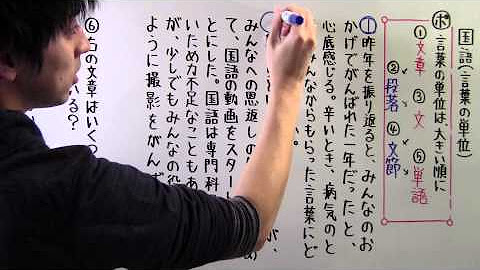 国語(言葉の単位)
ポ 言葉の単位は、大きい順に
①文章 ③文 ⑤単語
②段落 ④文節
①昨年を振り返ると、みんなのお
かげでがんばれた一年だったと、
心底感じる。辛いとき、病気のと
みんなからもらった言葉にど
が、
みんなへの恩返しの
て、国語の動画をスター
とにした。国語は専門科
いため力不足なこともあ
が、少しでもみんなの役
ように撮影をがんば
⑥右の文章はいくつ
いる?